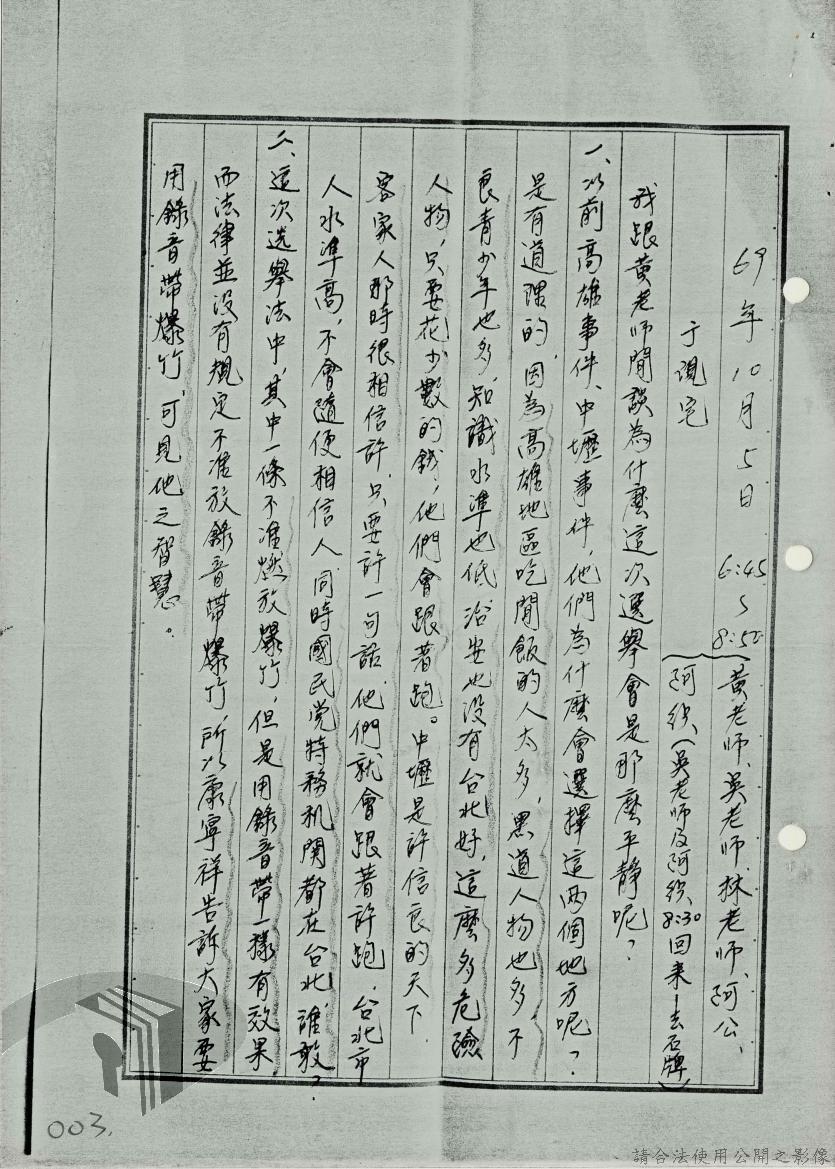 69年10月5日 6:45~8:50 黃老師、吳老師、林老師、阿公、
于現宅 阿繽(吳老師及阿繽8:30回来—去石牌)
我跟黃老師閒談為什麼這次選舉會是那麼平靜呢?
一、以前高雄事件、中壢事件,他們為什麼會選擇這两個地方呢?
是有道理的,因為高雄地區吃閒飯的人太多,黑道人物也多,不
良青少年也多,知識水準也低,治安也没有台北好,這麼多危險
人物,只要花少數的錢,他們會跟著跑。中壢是許信良的天下,
客家人那時很相信許,只要許一句話,他們就會跟著許跑,台北市
人水準高,不會隨便相信人,同時國民党特務机関都在台北,誰敢?
二、這次选舉法中,其中一條不准燃放爆竹,但是用錄音帶一樣有效果,
而法律並没有規定不准放錄音帶爆竹,所以康寧祥告訴大家要
用錄音帶爆竹,可見他之智慧。
003.
請合法使用公開之影像